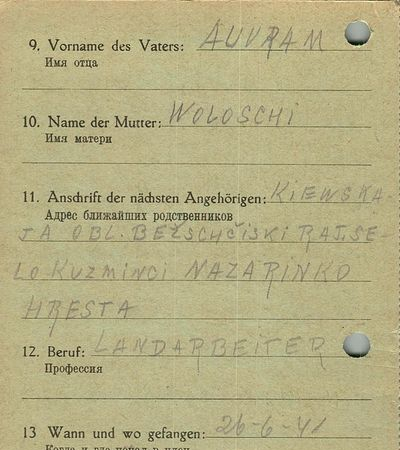 9. Vorname des Vaters: AUVRAM
Имя отца
10. Name der Mutter: WOLOSCHI
Имя матери
11. Anschrift der nächsten Angehörigen: KIEWSKA-
Адрес ближайших родственников
JA OBL. RAJ.SE-
LO KUZMINCI NAZARINKO
HRESTA
12. Beruf: LANDARBEITER
Профессия
13 Wann und wo gefangen: 26-6-41
Когда и где попал в плен